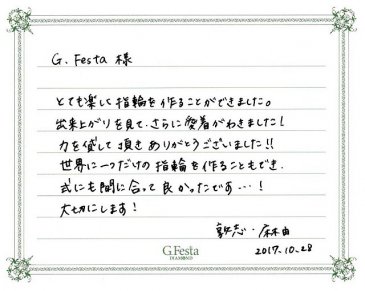 G. Festa 様
とても楽しく指輪を作ることができました。
出来上がりを見て、さらに愛着がわきました!
力を貸して頂きありがとうございました!!
世界に一つだけの指輪を作ることもでき、
式にも間に合って良かったです…!
大切にします!
敦志・麻由
G.Festa
DIAMOND
2017.10.28